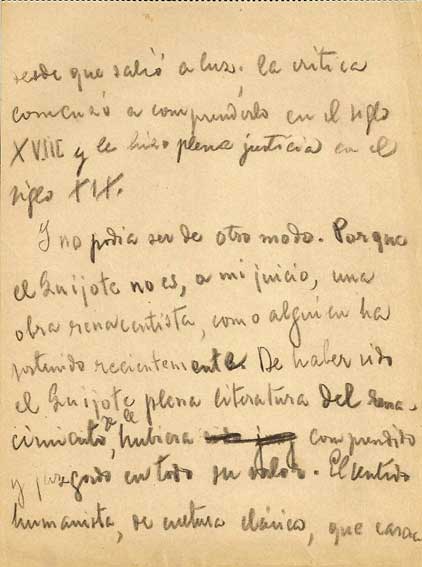 desde que salió a luz. La crítica
comenzó a comprenderlo en el siglo
XVIII y le hizo plena justicia en el
siglo XIX.
Y no podía ser de otro modo. Porque
el Quijote no es, a mi juicio, una
obra renacentista, como alguien ha
sostenido recientemente. De haber sido
el Quijote plena literatura del rena-
cimiento, se le hubiera comprendido
y juzgado en todo su valor. El sentido
humanista, de cultura clásica, que carac